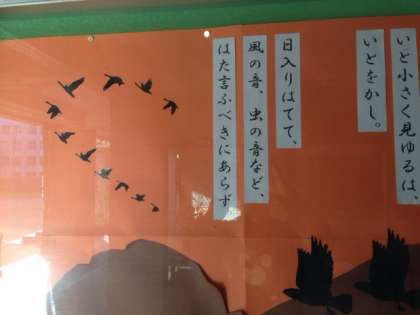 いと小さく見ゆるは、
いとをかし。
日入りはてて、
風の音、虫の音など、
はた言ふべきにあらず